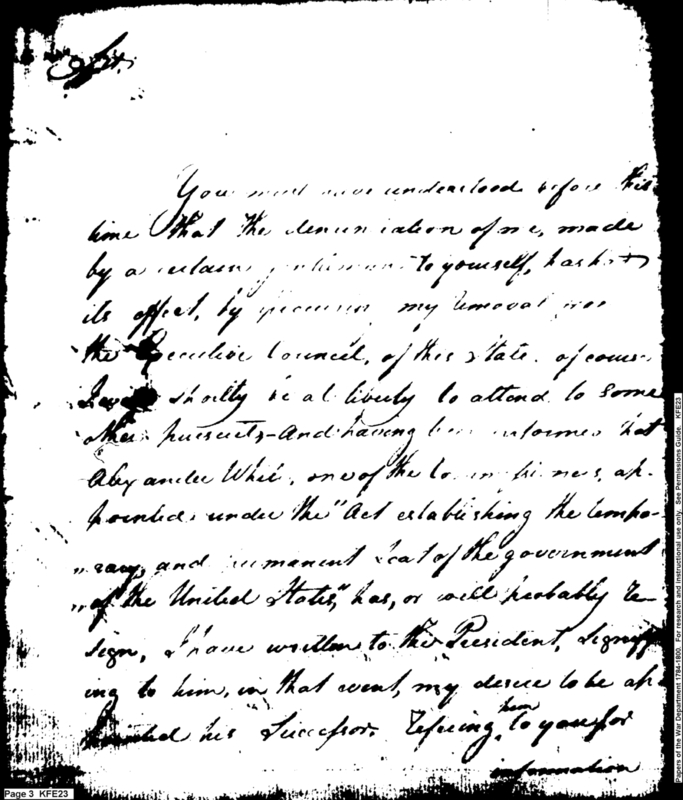 Sir.
You must have understood before this
time that the denunciation of me, made
by a certain gentleman to yourself, has had
its effect, by my removal from
the Executive Council, of this State. of course
I shortly be at liberty to attend to some
other pursuits—And having been informed that
Alexander White, one of the Commissioners, ap-
pointed under the "Act establishing the tempo-
"rary, and permanent Seat of the government
"of the United States," has, or will probably re-
sign, I have written to the President, signify-
ing to him, in that event, my desire to be ap-
pointed his Successor. Refering him to you for
information
Page 3 KFE23
Papers of the War Department 1784-1800. For research and instructional use only. See Permissions Guide. KFE23